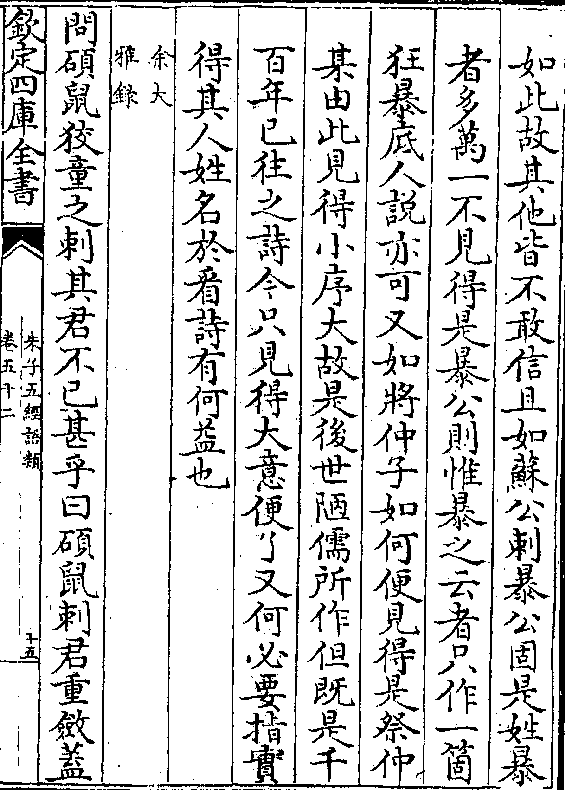 如此故其他皆不敢信且如蘇公刺暴公固是姓暴
者多萬一不見得是暴公則惟暴之云者只作一箇
狂暴底人說亦可又如將仲子如何便見得是祭仲
某由此見得小序大故是後世陋儒所作但既是千
百年已往之詩今只見得大意便了又何必要指實
得其人姓名於看詩有何益也
余大
雅錄
問碩鼠狡童之刺其君不已甚乎曰碩鼠刺君重斂蓋
欽定四庫全書
朱子五經語類
卷五十二
十五